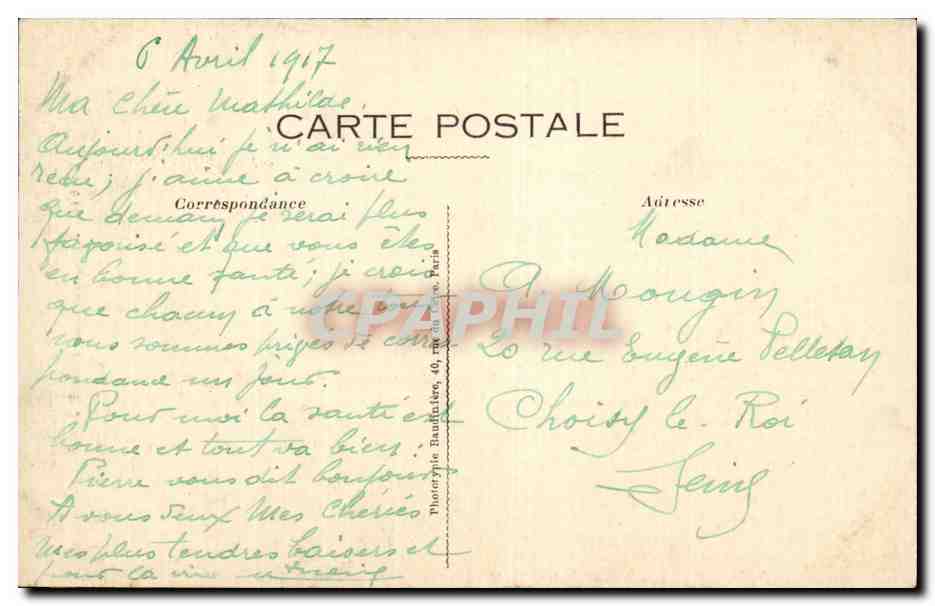 6 Avril 1917
Ma Chère Mathilde,
CARTE POSTALE
Aujourd'hui je n'ai rien
reçu; j'aime à croire
Correspondance
que demain je serai plus
favorisé et que vous êtes
en bonne santé; je crois
que chacun à notre tour
nous sommes privés de corres
pondance un jour.
Pour moi la santé est
bonne et tout va bien.
Pierre vous dit bonjour
A vous deux Mes Chéries
Mes plus tendres baisers et
pour la vie
Phototypie Baudinière, 40, rue du Caire, Paris
Adresse
Madame
A Mougin
20 rue Eugène Pelletan
Choisy le-Roi
Seine
CPAPHIL